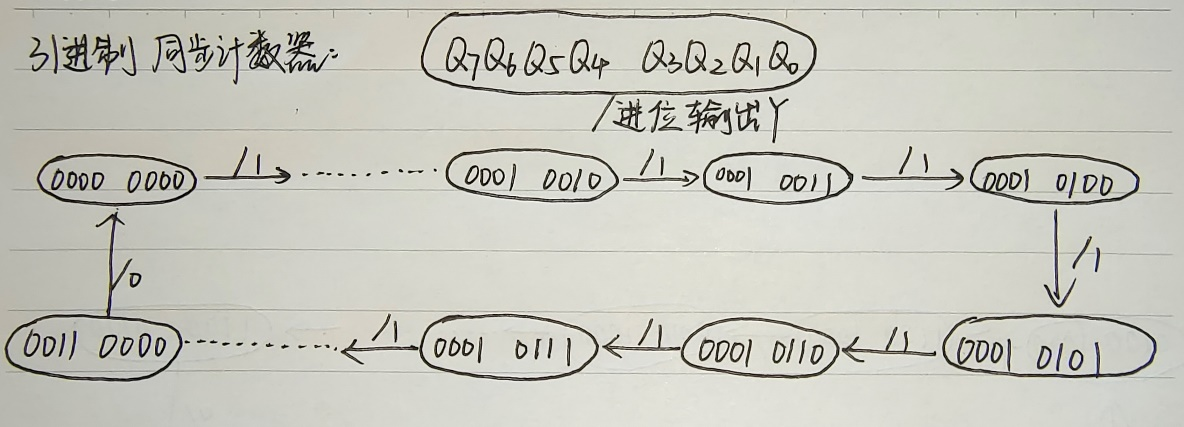 31进制 同步计数器:
Q7Q6Q5Q4 Q3Q2Q1Q0
/进位输出Y
0000 0000 /1 ········ 0001 0010 /1 0001 0011 /1 0001 0100
/0 /1
0011 0000 ········ /1 0001 0111 /1 0001 0110 /1 0001 0101